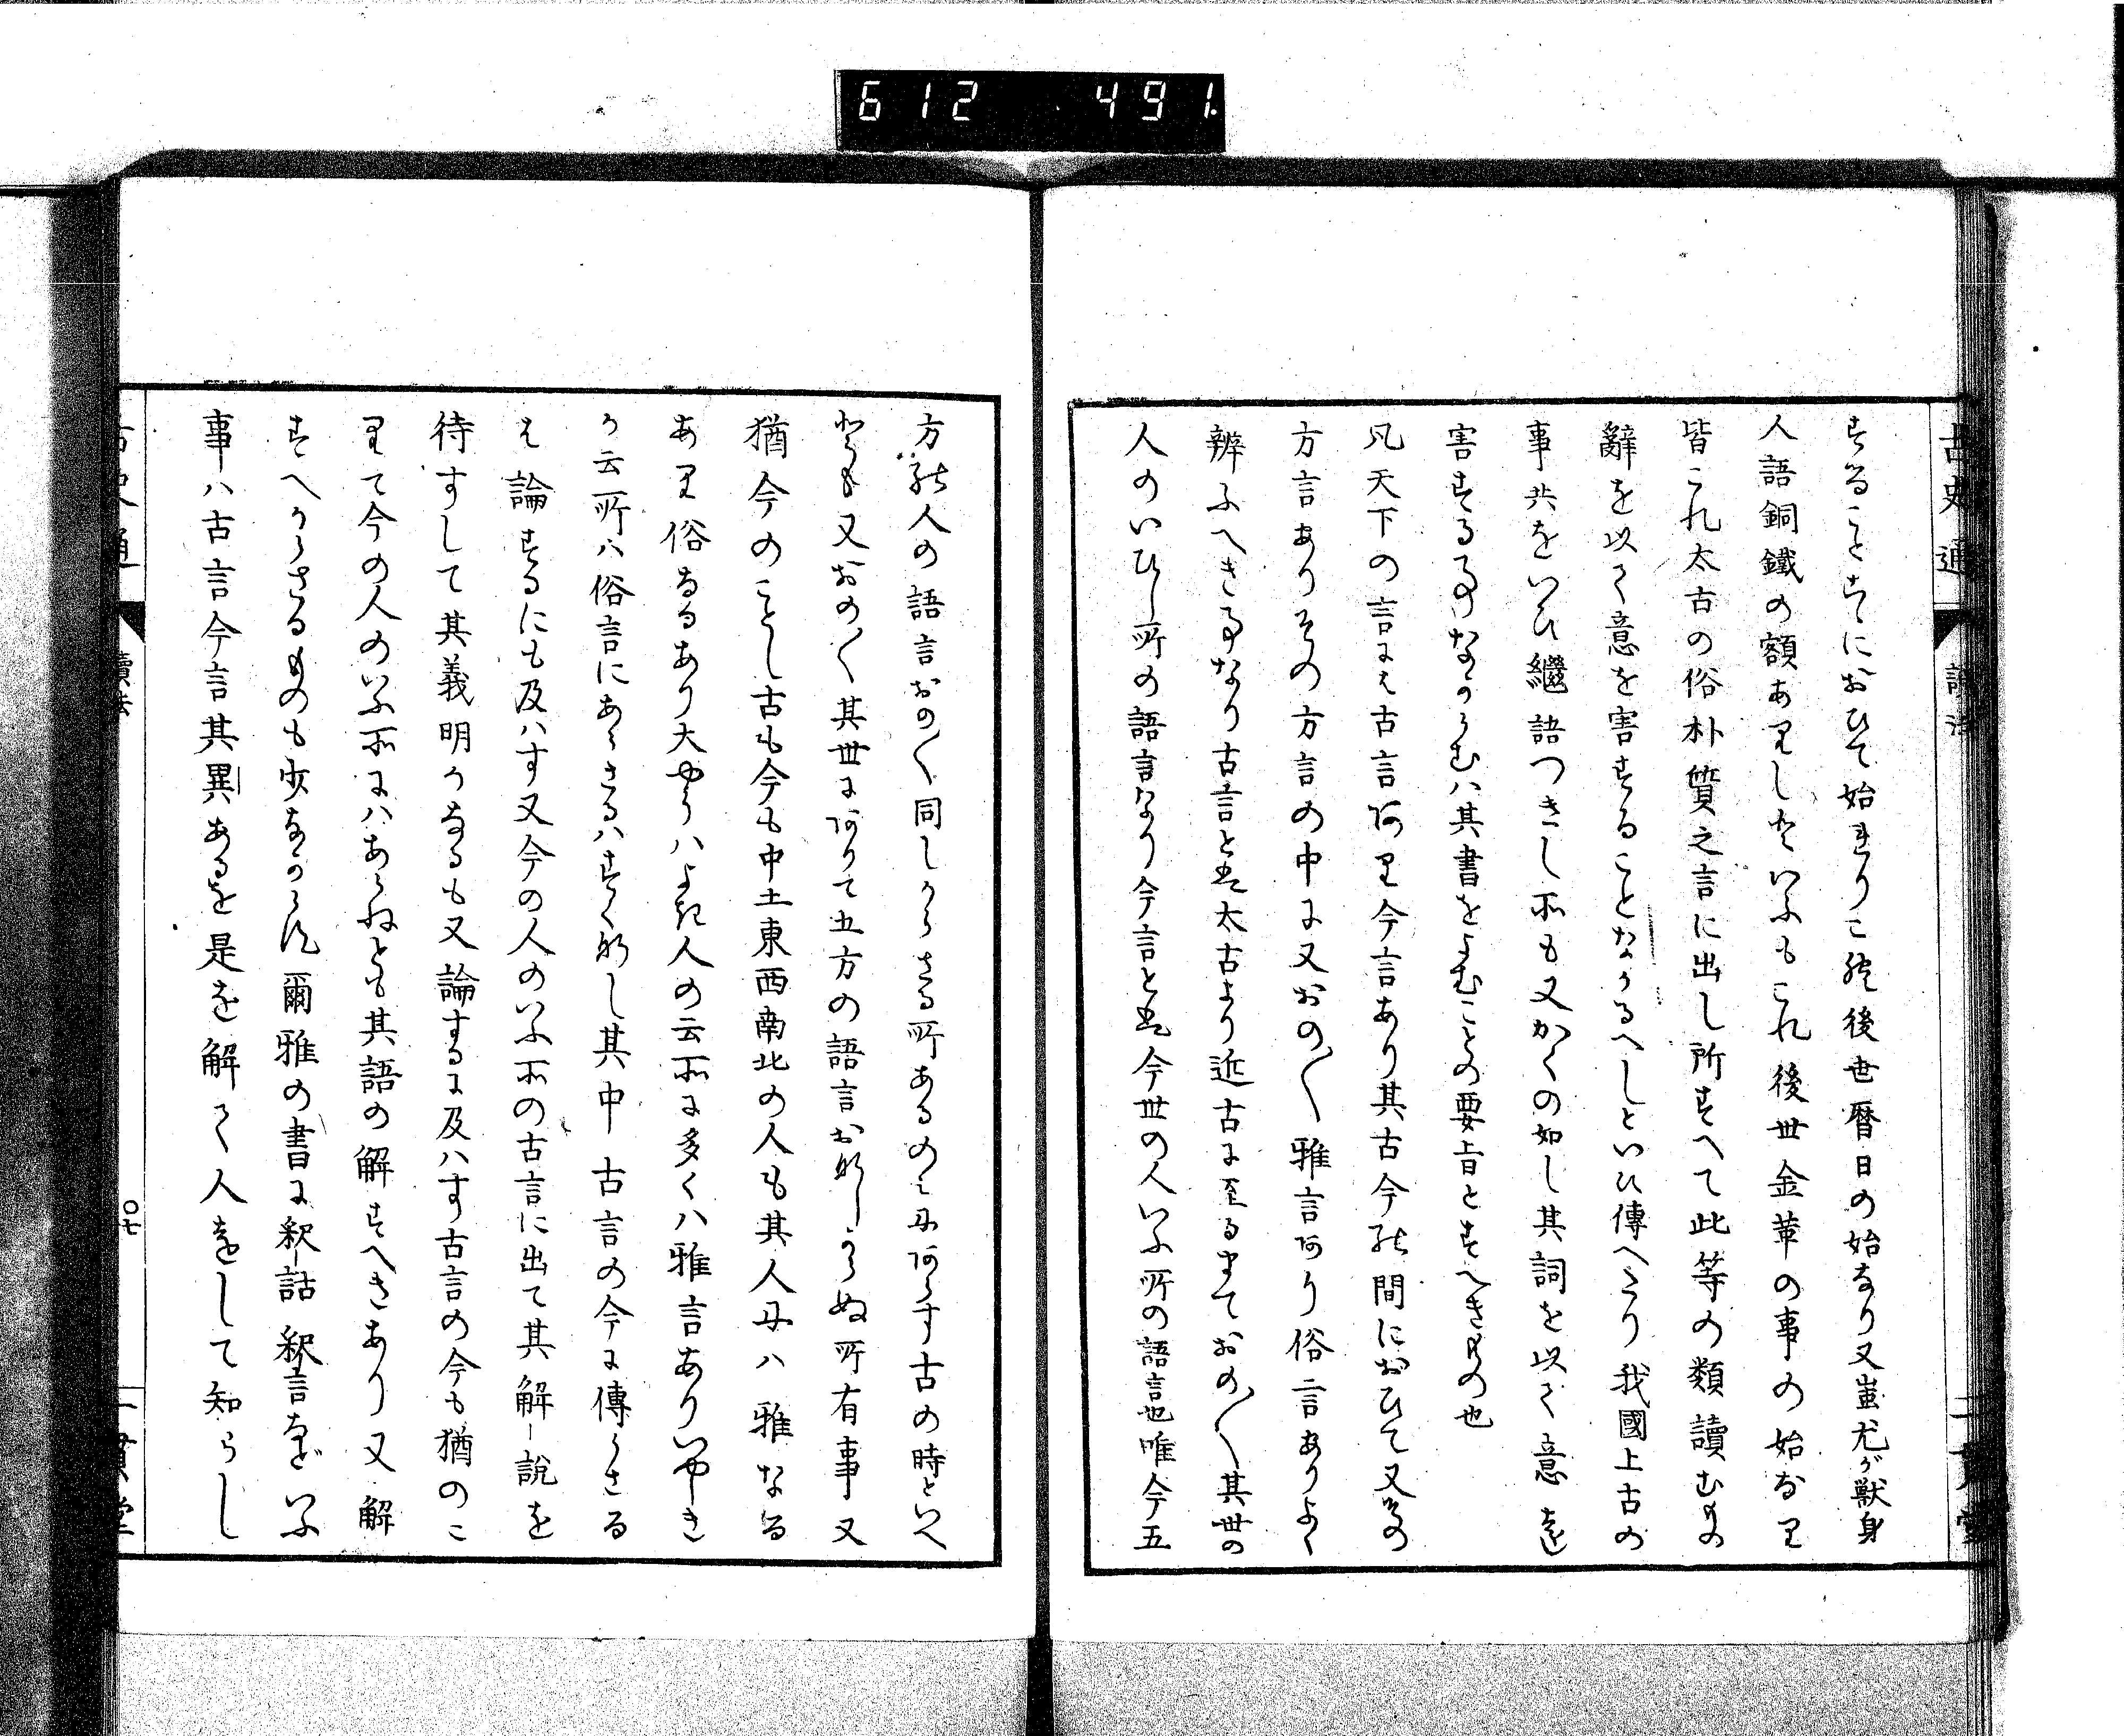 612 491.
古史通 讀法 一貫堂
することすにおひて始れりこれ後世暦日の始なり又蚩尤が獣身
人語銅鐵の額ありしといふもこれ後世金革の事の始なり
皆これ太古の俗朴質之言に出し所すへて此等の類讀むもの
辭を以て意を害することなかるへしといひ傳へたり我國上古の
事共をいひ繼語つきし所も又かくの如し其詞を以て意を
害する事なからむハ其書をよむことの要旨とすへきもの也
凡天下の言には古言あり今言あり其古今の間におひて又その
方言ありその方言の中に又おの〱雅言あり俗言ありよく
辨ふへき事なり古言とは太古より近古に至るまておの〱其世の
人のいひし所の語言なり今言とは今世の人いふ所の語言也唯今五
方の人の語言おの〱同しからさる所あるのみにあらす古の時といへ
とも又おの〱其世にありて五方の語言おなしからぬ所有事又
猶今のことし古も今も中土東西南北の人も其人にハ雅なる
あり俗なるあり大やうハよき人の云所に多くハ雅言ありいやしき
か云所ハ俗言にあらさるハすくなし其中古言の今に傳らさる
は論するにも及ハす又今の人のいふ所の古言に出て其解説を
待すして其義明かなるも又論するに及ハす古言の今も猶のこ
りて今の人のいふ所にハあらねとも其語の解すへきあり又解
すへからさるものも少なからす爾雅の書に釈詁釈言なといふ
事ハ古言今言其異あるを是を解て人をして知らし
古史通 讀法 〇七 一貫堂